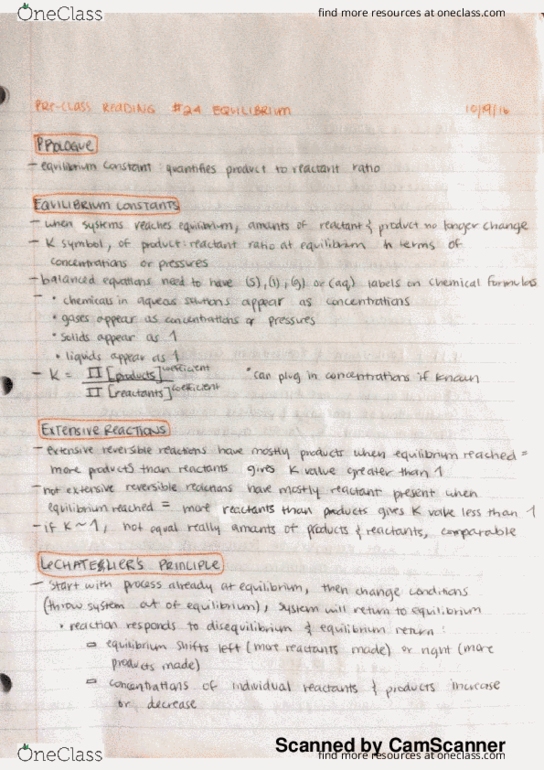 OneClass
find more resources at oneclass.com
PRE-CLASS READING #24 EQUILIBRIUM 10/19/16
PROLOGUE
- equilibrium constant: quantifies product to reactant ratio
EQUILIBRIUM CONSTANTS
- when systems reaches equilibrium, amants of reactant & product no longer change
- K symbol, of product:reactant ratio at equilibrium in terms of
concentrations or pressures
- balanced equations need to have (s), (l), (g) or (aq) labels on chemical formulas
- • chemicals in aqueous solutions appear as concentrations
• gases appear as concentrations or pressures
• solids appear as 1
• liquids appear as 1
- K = Π [products]^coefficient *can plug in concentrations if known
Π [reactants]^coefficient
EXTENSIVE REACTIONS
- extensive reversible reactions have mostly products when equilibrium reached =
more products than reactants gives K value greater than 1
- not extensive reversible reactions have mostly reactant present when
equilibrium reached = more reactants than products gives K value less than 1
- if K ~ 1, not equal really amants of products & reactants, comparable
LECHATERLIER'S PRINCIPLE
- start with process already at equilibrium, then change conditions
(throw system out of equilibrium), system will return to equilibrium
• reaction responds to disequilibrium & equilibrium return:
equilibrium shifts left (more reactants made) or right (more
products made)
concentrations of individual reactants & products increase
or decrease
Scanned by CamScanner
OneClass
find more resources at oneclass.com